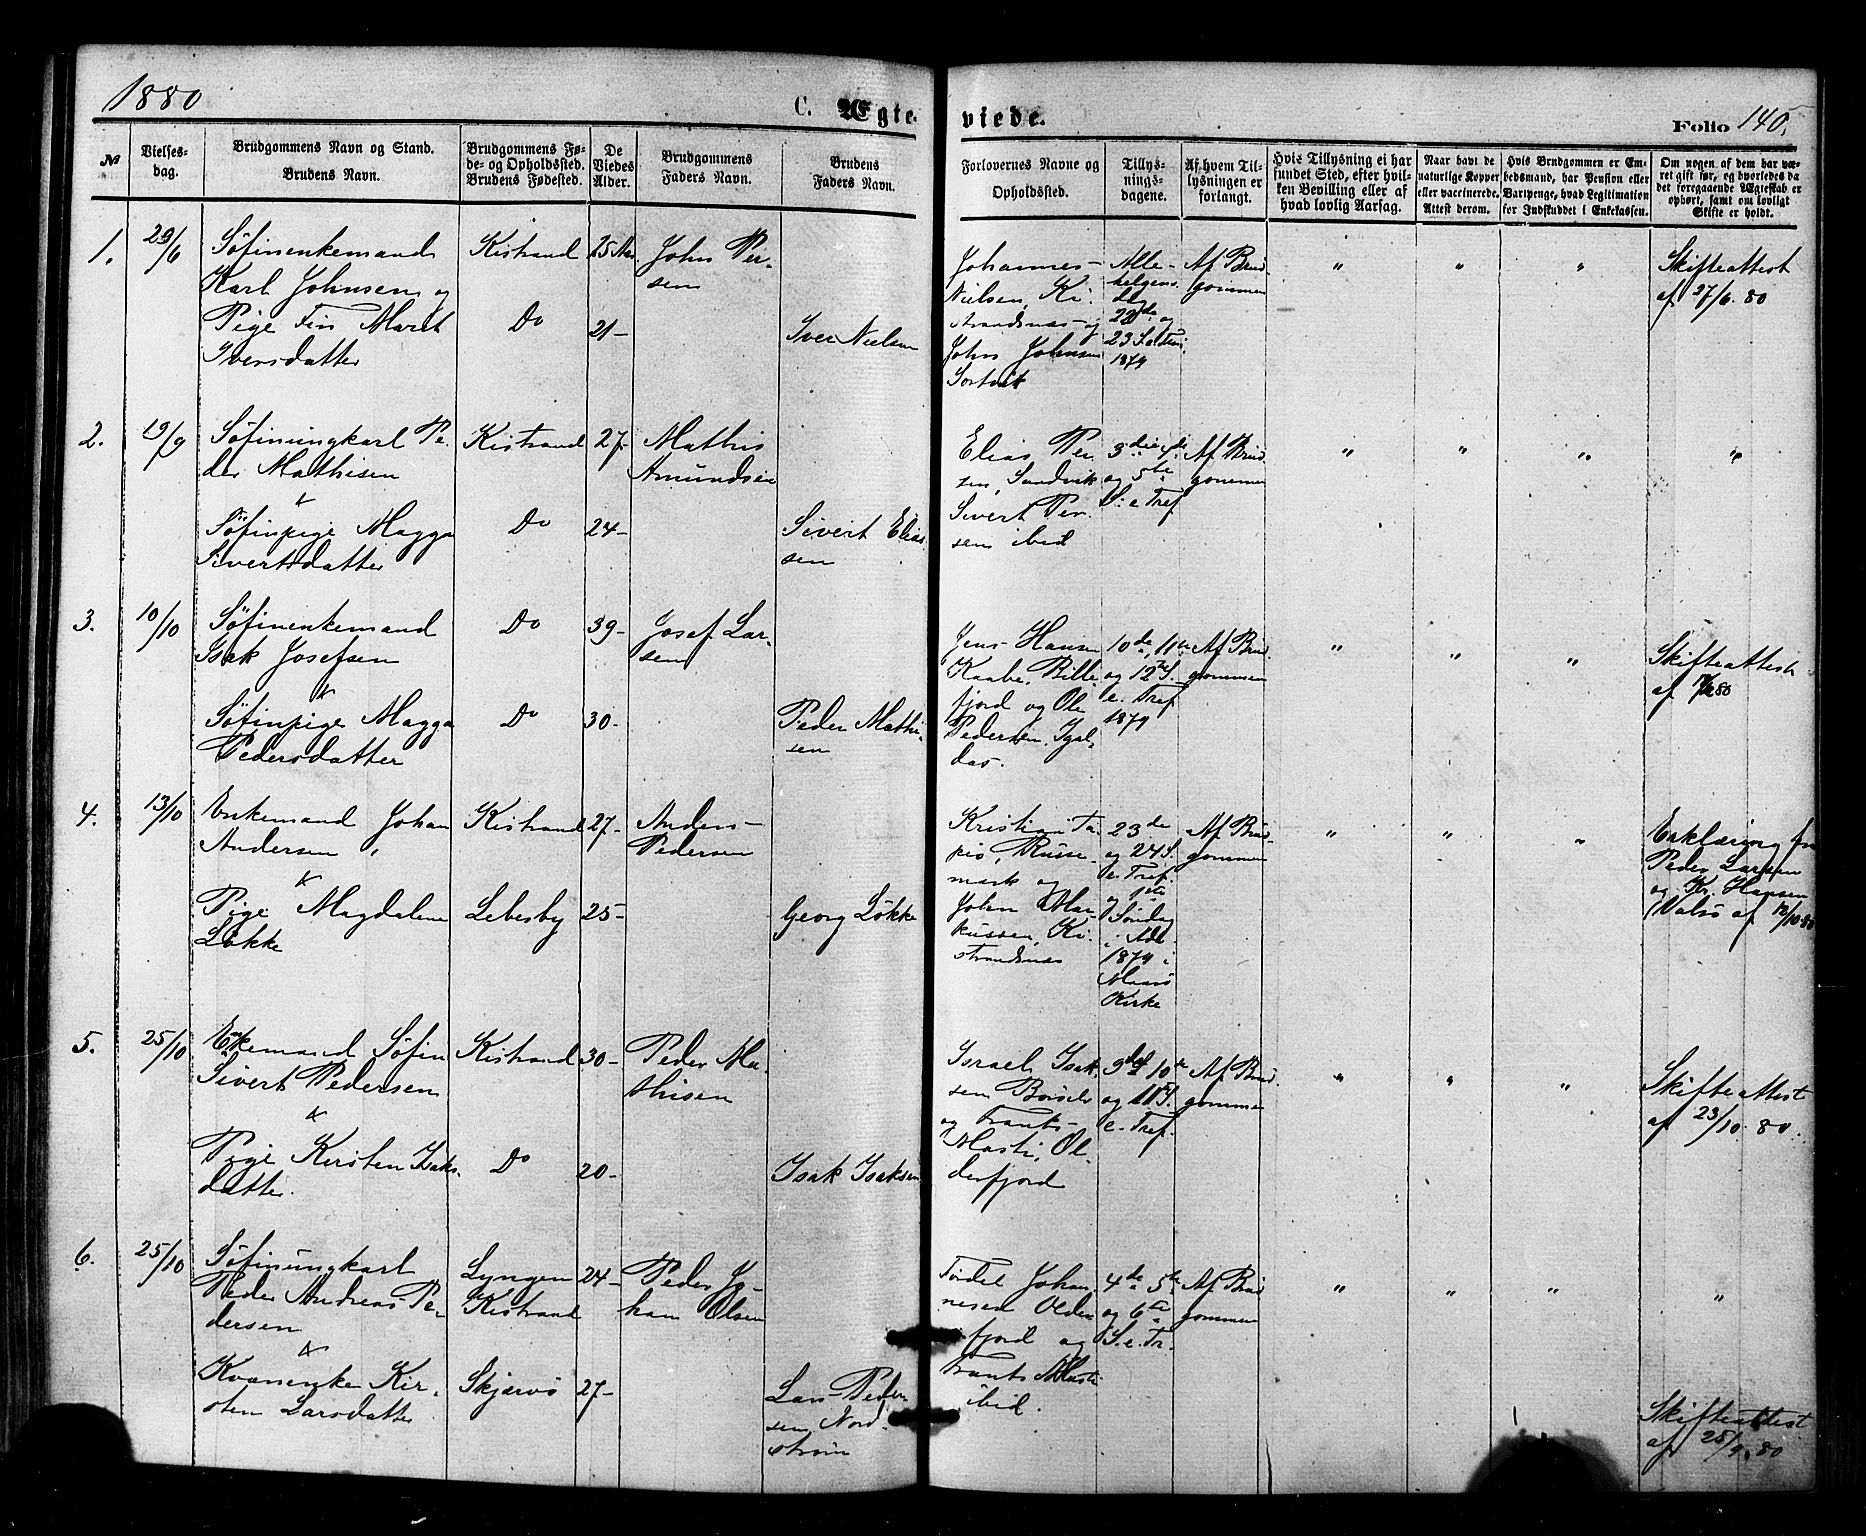 1880
C. Ægte-
viede.
Folio 140.
№
Vielses-
dag.
Brudgommens Navn og Stand.
Brudens Navn.
Brudgommens Fø-
de- og Opholdssted.
Brudens Fødested.
De
Viedes
Alder.
Brudgommens
Faders Navn.
Brudens
Faders Navn.
Forlovernes Navne og
Opholdssted.
Tillys-
nings-
dagene.
Af hvem Til-
lysningen er
forlangt.
Hvis Tillysning ei har
fundet Sted, efter hvil-
ken Bevilling eller af
hvad lovlig Aarsag.
Naar havt de
naturlige Kopper
eller vaccinerede.
Attest derom.
Hvis Brudgommen er Em-
bedsmand, har Pension eller
Vartpenge, hvad Legitimation
for Indskuddet i Enkekassen.
Om nogen af dem har væ-
ret gift før, og hvorledes da
det foregaaende Ægteskab er
ophørt, samt om lovligt
Skifte er holdt.
1.
29/6
Søfinenkemand
Karl Johnsen og
Pige Fin Marit
Iversdatter
Kistrand
Do
25 Aar
21-
John Per-
sen
Iver Nielsen
Johannes
Nielsen, Ki-
strandsnæs og
John Johnsen
Sortvik
Alle-
helgens
dag
22de og
23 S.
1879
Af Brud-
gommen
"
"
"
Skifteattest
af 27/6. 80
2.
19/9
Søfinungkarl Pe-
der Mathisen
&
Søfinpige Magga
Sivertsdatter
Kistrand
Do
27-
24-
Mathis
Amundsen
Sivert Elias-
sen
Elias Per-
sen, Sandvik
Sivert Per-
sen ibid
3die 4de
og 5te
S. e Tref
Af Brud-
gommen
"
"
"
"
3.
10/10
Søfinenkemand
Isak Josefsen
&
Søfinpige Magga
Pedersdatter
Do
Do
39-
30-
Josef Lar-
sen
Peder Mathi-
sen
Jens Hansen
Kaabe, Bille-
fjord og Ole
Pedersen, Igel-
das.
10de, 11te
og 12te S.
e. Tref
1879
Af Brud-
gommen
"
"
"
Skifteattest
af
80
4.
13/10
Enkemand Johan
Andersen,
&
Pige Magdalene
Løkke
Kistrand
Lebesby
27-
25-
Anders
Pedersen
Georg Løkke
Kristian
Russe-
mark og
Johan Mar-
kussen, Ki-
strandsnæs
23de
og 24 S.
e. Tref.
1ste
Søndag
i Adv.
1879 i
Maasø
Kirke
Af Brud-
gommen
"
"
"
Erklæring fra
Peder Larsen
og Kr. Hansen
Valsø af 12/10.80
5.
25/10
Enkemand Søfin
Sivert Pedersen
&
Pige Kirsten Isaks-
datter.
Kistrand
Do
30-
20-
Peder Ma-
thisen
Isak Isaksen
Israel Isak-
sen Børselv
og Frants
Masti, Ol-
derfjord
9de 10de
og 11 S.
e. Tref.
Af Brud-
gommen
"
"
"
Skifteattest
af 23/10. 80.
6.
25/10
Søfinungkarl
Peder Andreas Pe-
dersen
&
Kvænenke Kir-
sten Larsdatter
Lyngen
Kistrand
Skjærvø
24-
27-
Peder Jo-
han Olsen
Lars Peder-
sen Nord-
strøm
Johan-
nesen Olden
fjord og
Frants Masti
ibid.
4de 5te
og 6te
S. e. Tr.
Af Brud-
gommen
"
"
"
"
Skifteattest
af 25/9. 80